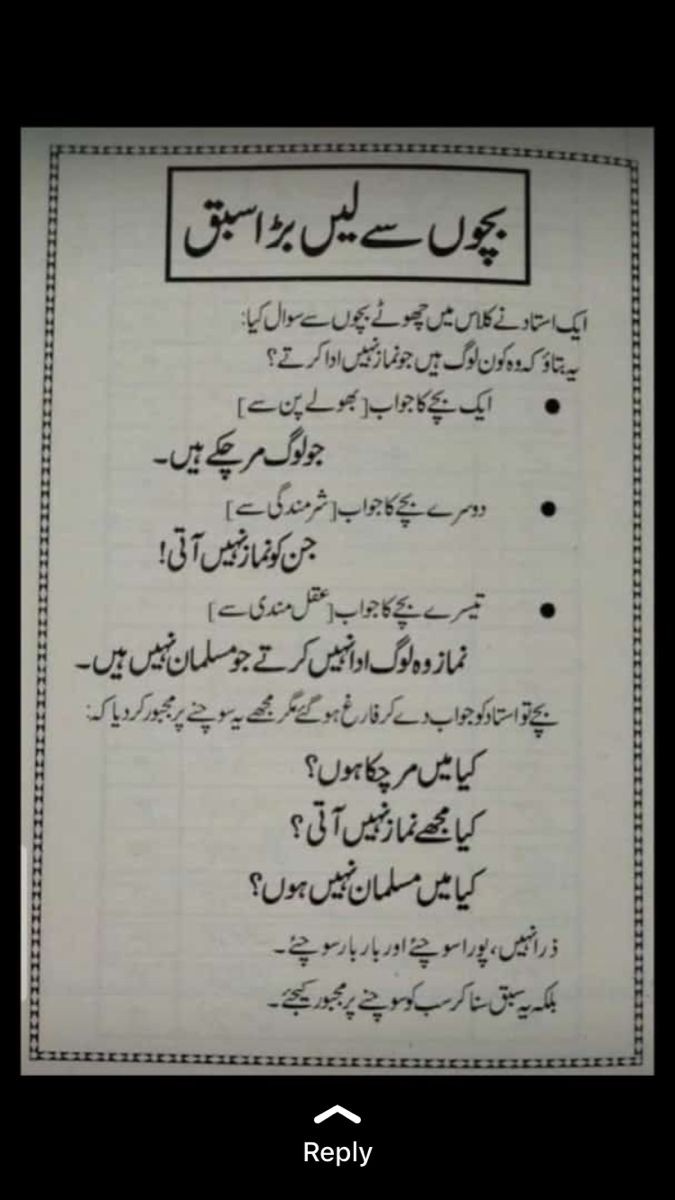 بچوں سے لیں بڑا سبق
ایک استاد نے کلاس میں چھوٹے بچوں سے سوال کیا:
یہ بتاؤ کہ وہ کون لوگ ہیں جو نماز نہیں ادا کرتے؟
● ایک بچے کا جواب [بھولے پن سے]
جو لوگ مر چکے ہیں۔
● دوسرے بچے کا جواب [شرمندگی سے]
جن کو نماز نہیں آتی!
● تیسرے بچے کا جواب [عقل مندی سے]
نماز وہ لوگ ادا نہیں کرتے جو مسلمان نہیں ہیں۔
بچے تو استاد کو جواب دے کر فارغ ہو گئے مگر مجھے یہ سوچنے پر مجبور کر دیا کہ:
کیا میں مر چکا ہوں؟
کیا مجھے نماز نہیں آتی؟
کیا میں مسلمان نہیں ہوں؟
ذرا نہیں، پورا سوچئے اور بار بار سوچئے۔
بلکہ یہ سبق سنا کر سب کو سوچنے پر مجبور کیجئے۔
Reply